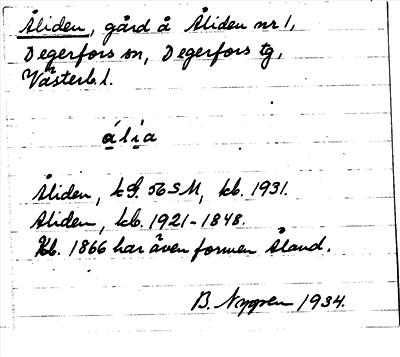 Åliden, gård å Åliden nr 1,
Degerfors sn, Degerfors tg,
Västerb. l.
á̤lı̤a
Åliden, k S. 56 SM, kb. 1931.
Åliden, kb. 1921-1848.
Kb. 1866 har även formen Åland.
B. Nygren 1934.